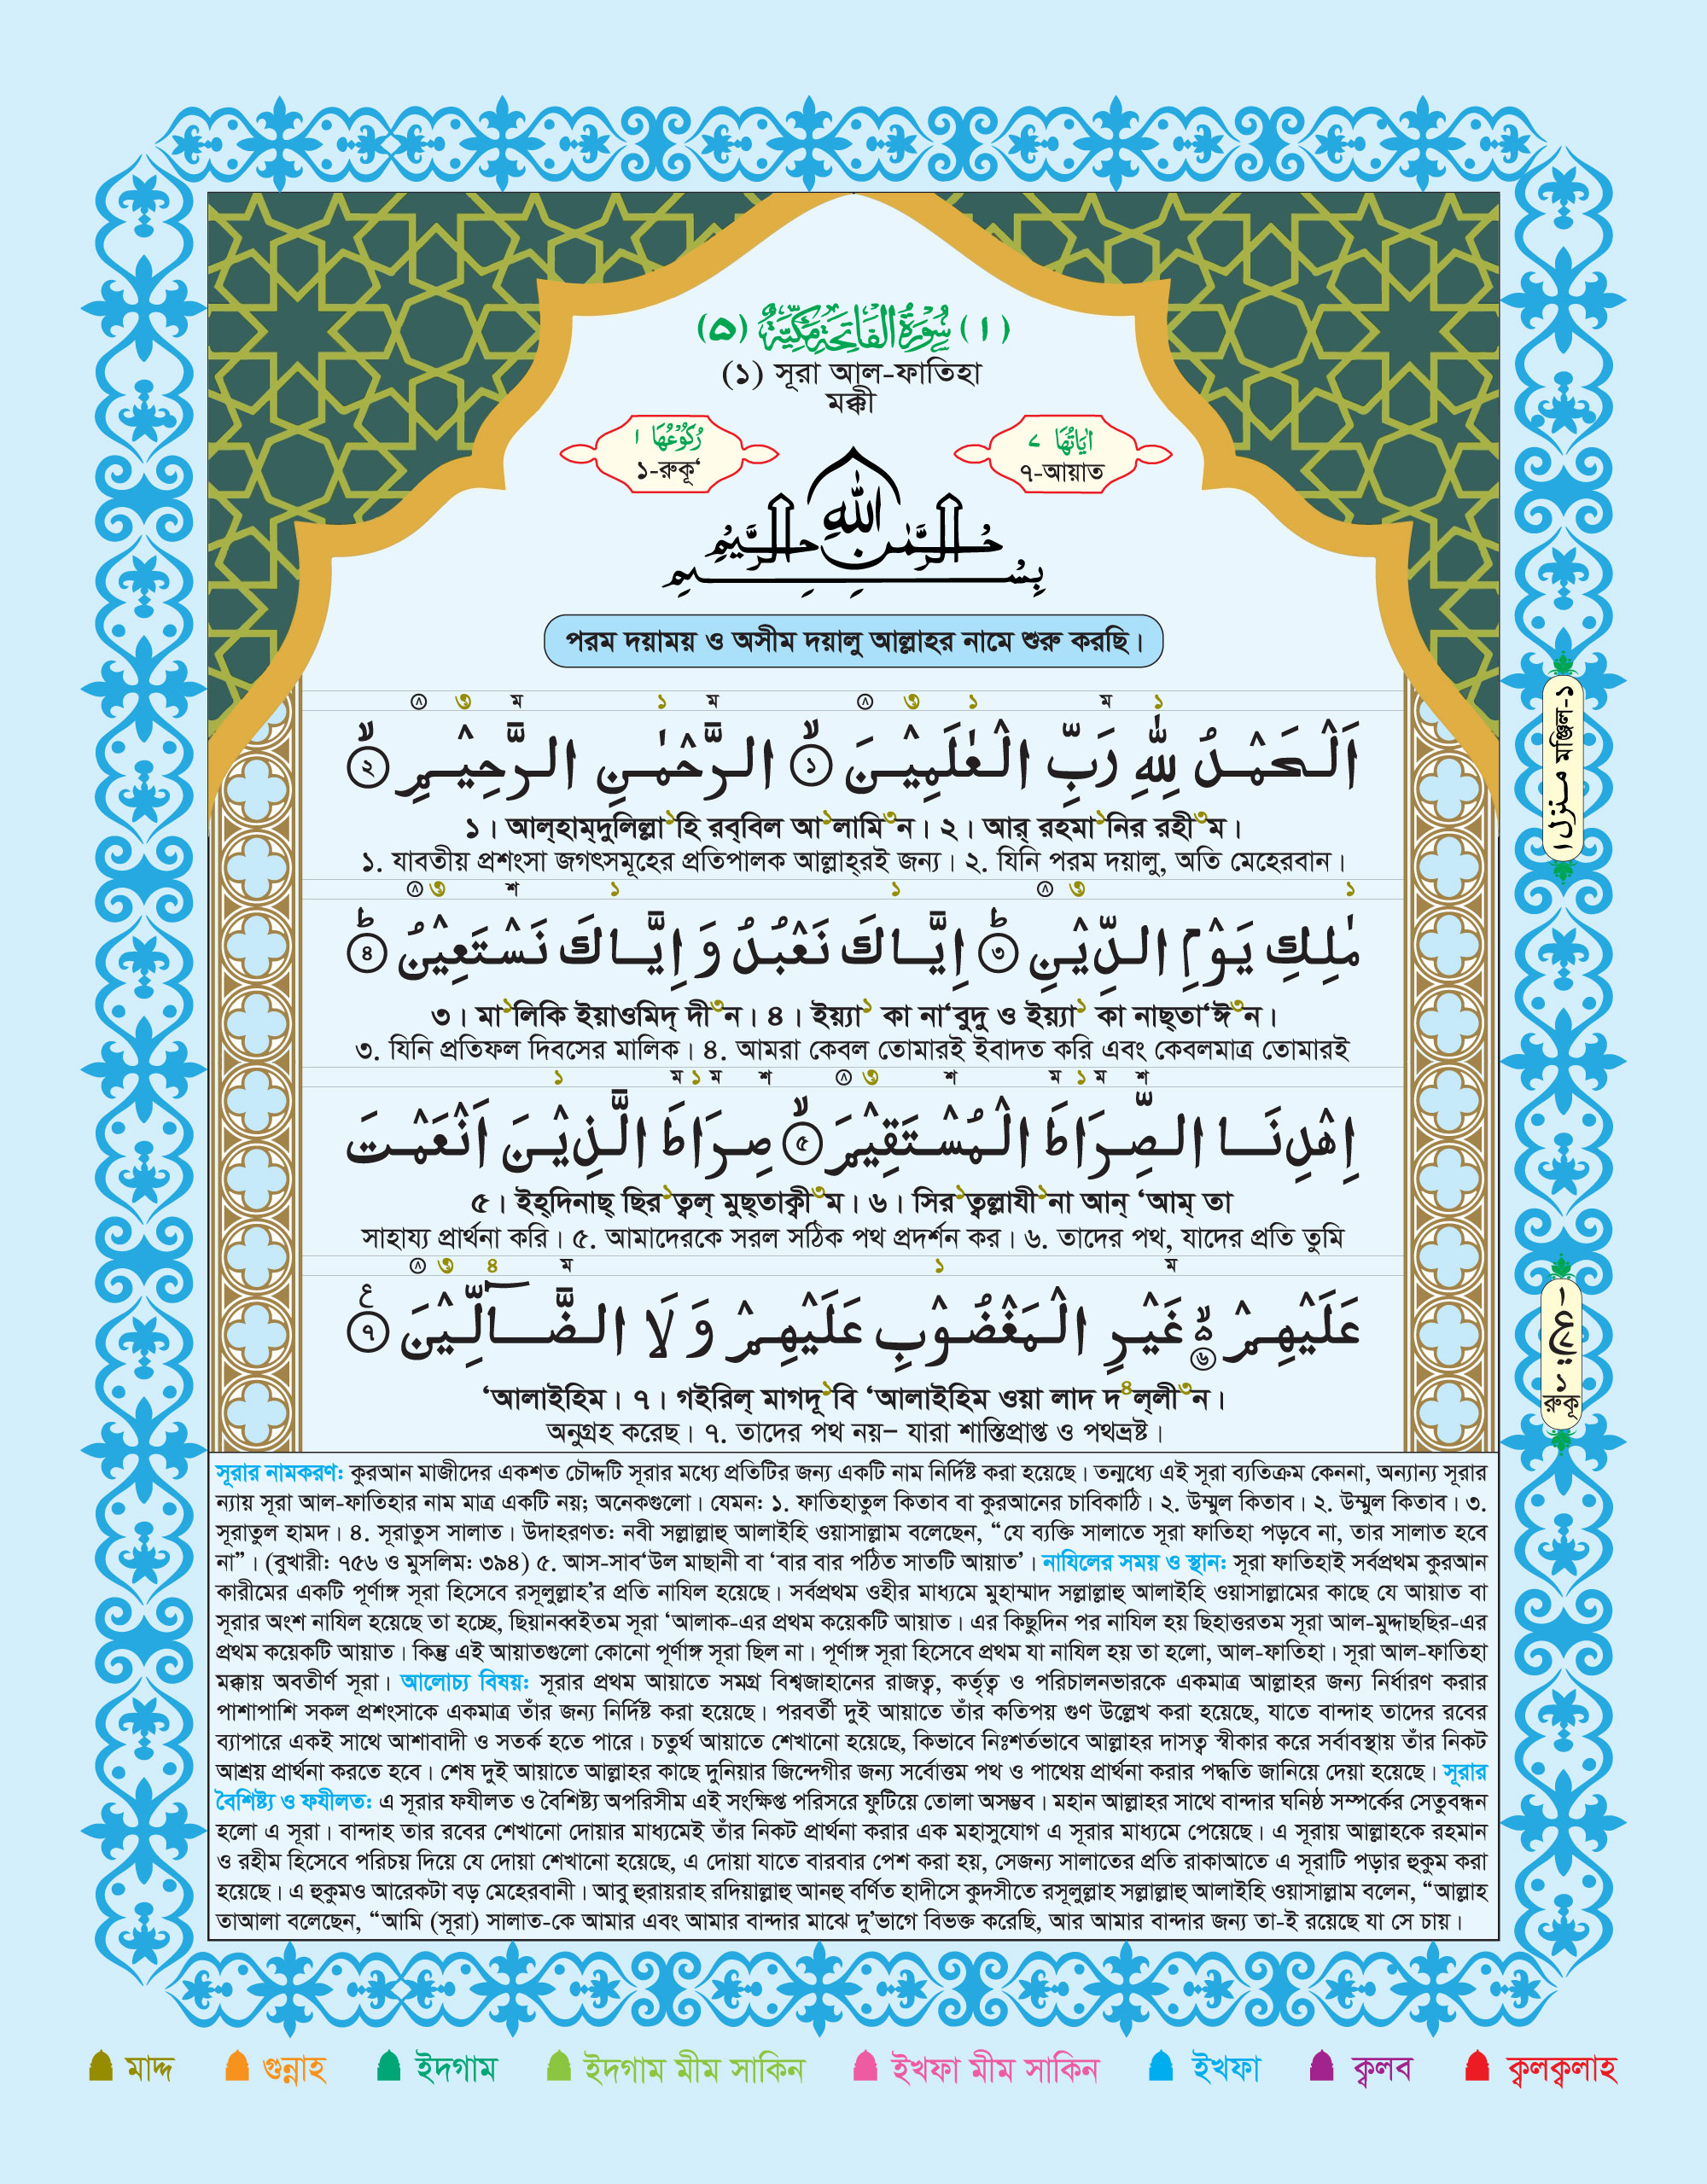 (١) سُوْرَةُ الْفَاتِحَةِ مَكِّيَّةٌ (٥)
(১) সূরা আল-ফাতিহা
মক্কী
اٰيَاتُهَا ٧
৭-আয়াত
رُكُوْعُهَا ١
১-রুকূ‘
بِسْمِ اللهِ الرَّحْمٰنِ الرَّحِيْمِ
পরম দয়াময় ও অসীম দয়ালু আল্লাহর নামে শুরু করছি।
৩ ম ১ ম ৩ ১ ম ১
اَلْحَمْدُ لِلّٰهِ رَبِّ الْعٰلَمِيْنَ ۙ﴿১﴾ الرَّحْمٰنِ الرَّحِيْمِ ۙ﴿২﴾
১। আল্‌হাম্‌দুলিল্লা১হি রব্‌বিল আ১লামি৩ন। ২। আর্‌ রহমা১নির রহী৩ম।
১. যাবতীয় প্রশংসা জগৎসমূহের প্রতিপালক আল্লাহ্‌রই জন্য। ২. যিনি পরম দয়ালু, অতি মেহেরবান।
৩ শ ১ ১ ৩ ১
مٰلِكِ يَوْمِ الدِّيْنِ ؕ﴿৩﴾ اِيَّاكَ نَعْبُدُ وَ اِيَّاكَ نَسْتَعِيْنُ ؕ﴿৪﴾
৩। মা১লিকি ইয়াওমিদ্‌ দী৩ন। ৪। ইয়্যা১ কা না‘বুদু ও ইয়্যা১ কা নাছ্‌তা‘ঈ৩ন।
৩. যিনি প্রতিফল দিবসের মালিক। ৪. আমরা কেবল তোমারই ইবাদত করি এবং কেবলমাত্র তোমারই
১ ম ১ ম শ ৩ শ ম ১ ম শ
اِهْدِنَا الصِّرَاطَ الْمُسْتَقِيْمَ ۙ﴿৫﴾ صِرَاطَ الَّذِيْنَ اَنْعَمْتَ
৫। ইহ্‌দিনাছ্‌ ছির১ত্বল্‌ মুছ্‌তাক্বী৩ম। ৬। সির১ত্বল্লাযী১না আন্‌ ‘আম্‌ তা
সাহায্য প্রার্থনা করি। ৫. আমাদেরকে সরল সঠিক পথ প্রদর্শন কর। ৬. তাদের পথ, যাদের প্রতি তুমি
৩ ৪ ম ১ ম
عَلَيْهِمْ ۙ۬﴿৬﴾ غَيْرِ الْمَغْضُوْبِ عَلَيْهِمْ وَ لَا الضَّآلِّيْنَ ﴿৭﴾ ع
‘আলাইহিম। ৭। গইরিল্‌ মাগদূ১বি ‘আলাইহিম ওয়া লাদ দ৪ল্‌লী৩ন।
অনুগ্রহ করেছ। ৭. তাদের পথ নয়– যারা শাস্তিপ্রাপ্ত ও পথভ্রষ্ট।
সূরার নামকরণ: কুরআন মাজীদের একশত চৌদ্দটি সূরার মধ্যে প্রতিটির জন্য একটি নাম নির্দিষ্ট করা হয়েছে। তন্মধ্যে এই সূরা ব্যতিক্রম কেননা, অন্যান্য সূরার
ন্যায় সূরা আল-ফাতিহার নাম মাত্র একটি নয়; অনেকগুলো। যেমন: ১. ফাতিহাতুল কিতাব বা কুরআনের চাবিকাঠি। ২. উম্মুল কিতাব। ২. উম্মুল কিতাব। ৩.
সূরাতুল হামদ। ৪. সূরাতুস সালাত। উদাহরণত: নবী সল্লাল্লাহু আলাইহি ওয়াসাল্লাম বলেছেন, “যে ব্যক্তি সালাতে সূরা ফাতিহা পড়বে না, তার সালাত হবে
না”। (বুখারী: ৭৫৬ ও মুসলিম: ৩৯৪) ৫. আস-সাব‘উল মাছানী বা ‘বার বার পঠিত সাতটি আয়াত’। নাযিলের সময় ও স্থান: সূরা ফাতিহাই সর্বপ্রথম কুরআন
কারীমের একটি পূর্ণাঙ্গ সূরা হিসেবে রসূলুল্লাহ’র প্রতি নাযিল হয়েছে। সর্বপ্রথম ওহীর মাধ্যমে মুহাম্মাদ সল্লাল্লাহু আলাইহি ওয়াসাল্লামের কাছে যে আয়াত বা
সূরার অংশ নাযিল হয়েছে তা হচ্ছে, ছিয়ানব্বইতম সূরা ‘আলাক-এর প্রথম কয়েকটি আয়াত। এর কিছুদিন পর নাযিল হয় ছিহাত্তরতম সূরা আল-মুদ্দাছছির-এর
প্রথম কয়েকটি আয়াত। কিন্তু এই আয়াতগুলো কোনো পূর্ণাঙ্গ সূরা ছিল না। পূর্ণাঙ্গ সূরা হিসেবে প্রথম যা নাযিল হয় তা হলো, আল-ফাতিহা। সূরা আল-ফাতিহা
মক্কায় অবতীর্ণ সূরা। আলোচ্য বিষয়: সূরার প্রথম আয়াতে সমগ্র বিশ্বজাহানের রাজত্ব, কর্তৃত্ব ও পরিচালনভারকে একমাত্র আল্লাহর জন্য নির্ধারণ করার
পাশাপাশি সকল প্রশংসাকে একমাত্র তাঁর জন্য নির্দিষ্ট করা হয়েছে। পরবর্তী দুই আয়াতে তাঁর কতিপয় গুণ উল্লেখ করা হয়েছে, যাতে বান্দাহ তাদের রবের
ব্যাপারে একই সাথে আশাবাদী ও সতর্ক হতে পারে। চতুর্থ আয়াতে শেখানো হয়েছে, কিভাবে নিঃশর্তভাবে আল্লাহর দাসত্ব স্বীকার করে সর্বাবস্থায় তাঁর নিকট
আশ্রয় প্রার্থনা করতে হবে। শেষ দুই আয়াতে আল্লাহর কাছে দুনিয়ার জিন্দেগীর জন্য সর্বোত্তম পথ ও পাথেয় প্রার্থনা করার পদ্ধতি জানিয়ে দেয়া হয়েছে। সূরার
বৈশিষ্ট্য ও ফযীলত: এ সূরার ফযীলত ও বৈশিষ্ট্য অপরিসীম এই সংক্ষিপ্ত পরিসরে ফুটিয়ে তোলা অসম্ভব। মহান আল্লাহর সাথে বান্দার ঘনিষ্ঠ সম্পর্কের সেতুবন্ধন
হলো এ সূরা। বান্দাহ তার রবের শেখানো দোয়ার মাধ্যমেই তাঁর নিকট প্রার্থনা করার এক মহাসুযোগ এ সূরার মাধ্যমে পেয়েছে। এ সূরায় আল্লাহকে রহমান
ও রহীম হিসেবে পরিচয় দিয়ে যে দোয়া শেখানো হয়েছে, এ দোয়া যাতে বারবার পেশ করা হয়, সেজন্য সালাতের প্রতি রাকাআতে এ সূরাটি পড়ার হুকুম করা
হয়েছে। এ হুকুমও আরেকটা বড় মেহেরবানী। আবু হুরায়রাহ রদিয়াল্লাহু আনহু বর্ণিত হাদীসে কুদসীতে রসূলুল্লাহ সল্লাল্লাহু আলাইহি ওয়াসাল্লাম বলেন, “আল্লাহ
তাআলা বলেছেন, “আমি (সূরা) সালাত-কে আমার এবং আমার বান্দার মাঝে দু’ভাগে বিভক্ত করেছি, আর আমার বান্দার জন্য তা-ই রয়েছে যা সে চায়।
منزل ١ মঞ্জিল-১
রুকূ ১
মাদ্দ গুন্নাহ ইদগাম ইদগাম মীম সাকিন ইখফা মীম সাকিন ইখফা ক্বলব ক্বলক্বলাহ